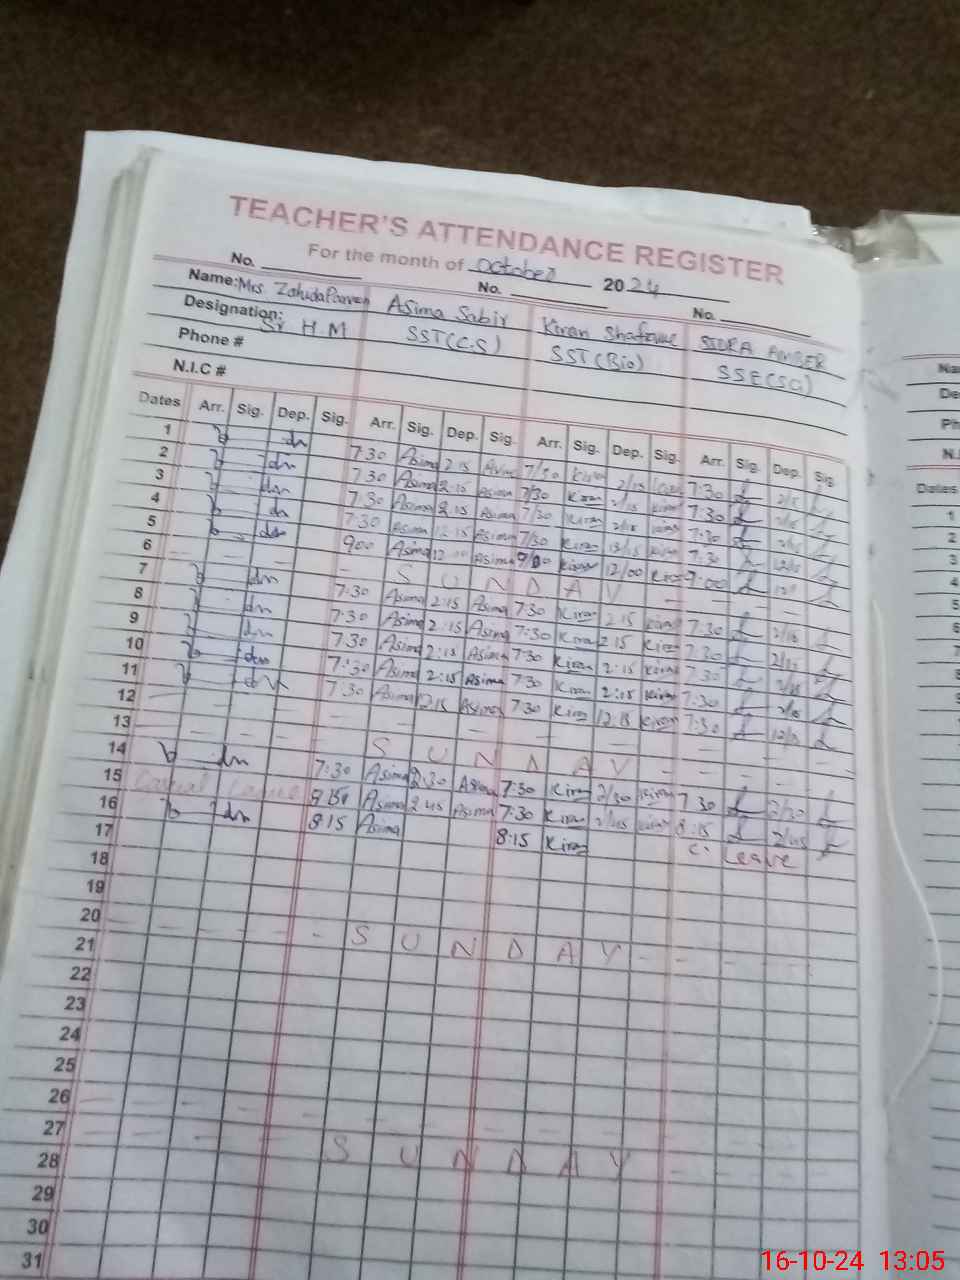 TEACHER'S ATTENDANCE REGISTER
For the month of October 2024
No. No. No.
Name: Mrs. Zahida Parveen Asima Sabir Kiran Shafique SIDRA AMBER
Designation: Sr H.M SST(C.S) SST(Bio) SSE(SCI)
Phone #
N.I.C #
Dates Arr. Sig. Dep. Sig. Arr. Sig. Dep. Sig. Arr. Sig. Dep. Sig. Arr. Sig. Dep. Sig.
1 7:30 Asima 2:15 Asima 7/30 Kiran 2/15 Kiran 7:30 2/15
2 7:30 Asima 2:15 Asima 7/30 Kiran 2/15 Kiran 7:30 2/15
3 7:30 Asima 2:15 Asima 7/30 Kiran 2/15 Kiran 7:30 2/15
4 7:30 Asima 12:15 Asima 7/30 Kiran 12/15 Kiran 7:30 12/15
5 9:00 Asima 12:00 Asima 9/00 Kiran 12/00 Kiran 9:00
6 SUNDAY
7 7:30 Asima 2:15 Asima 7:30 Kiran 2:15 Kiran 7:30 2/15
8 7:30 Asima 2:15 Asima 7:30 Kiran 2:15 Kiran 7:30 2/15
9 7:30 Asima 2:15 Asima 7:30 Kiran 2:15 Kiran 7:30 2/15
10 7:30 Asima 2:15 Asima 7:30 Kiran 2:15 Kiran 7:30 2/15
11 7:30 Asima 12:15 Asima 7:30 Kiran 12:15 Kiran 7:30 12/15
12
13 SUNDAY
14 7:30 Asima 2:30 Asima 7:30 Kiran 2/30 Kiran 7:30 2/30
15 Casual Leave Asima 2:45 Asima 7:30 Kiran 2/45 Kiran 8:15 2/45
16 8:15 Asima 8:15 Kiran C. Leave
17
18
19
20 SUNDAY
21
22
23
24
25
26
27 SUNDAY
28
29
30
31
Dates
1
2
3
4
5
6
7
8
16-10-24 13:05